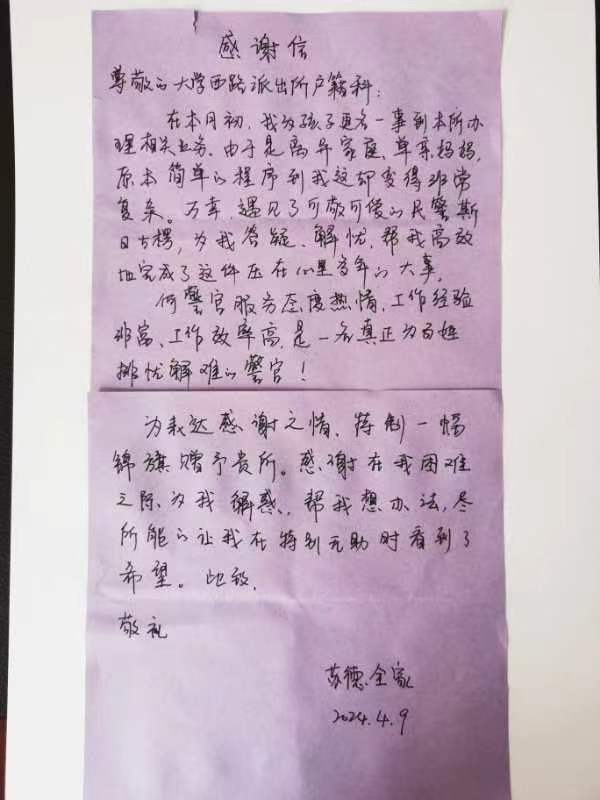 感谢信
尊敬的大学西路派出所户籍科：
在本月初，我为孩子更名一事到本所办
理相关业务。由于是离异家庭、单亲妈妈，
原本简单的程序到我这却变得非常
复杂。万幸，遇见了可敬可俊的民警斯
日古楞，为我答疑、解忧，帮我高效
地完成了这件压在心里多年的大事。
何警官服务态度热情、工作经验
非富、工作效率高，是一名真正为百姓
排忧解难的警官！
为表达感谢之情，特制一幅
锦旗赠予贵所。感谢在我困难
之际、为我解惑，帮我想办法，尽
所能的让我在特别无助时看到了
希望。此致，
敬礼
苏德全家
2024.4.9